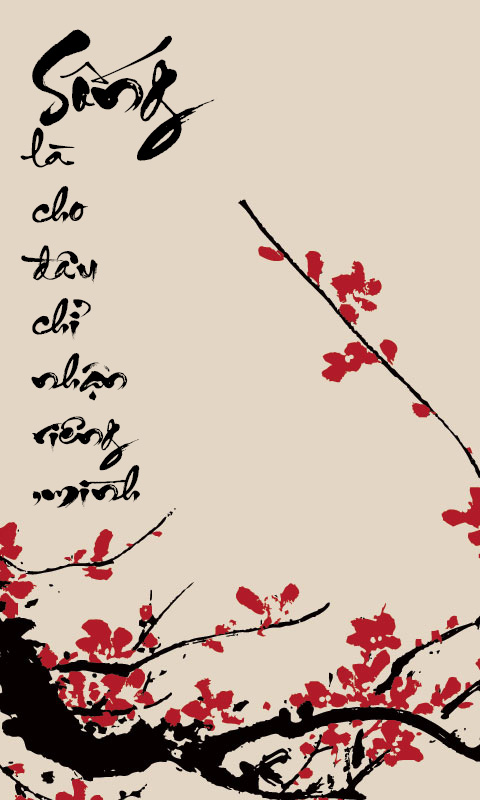 Sống
là
cho
đâu
chỉ
nhận
riêng
mình